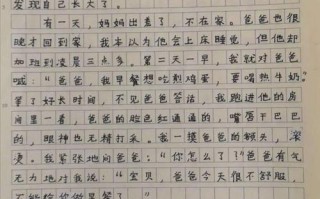 发现自己长大了。
有一天，妈妈出差了，不在家。爸爸也很
晚才回到家，我本以为他会上床睡觉，但他却
加班到凌晨三点多。第二天一早，我就对爸爸
喊："爸爸，我早餐想吃煎鸡蛋，要喝热牛奶。
等了好长时间，不见爸爸答话，我跑进他的房
间里一看，爸爸的脸色红通通的，嘴唇干巴巴
的，眼神也无精打采。我一摸爸爸的额头，滚
烫。我紧张地问爸爸："你怎么了？"爸爸有气
无力地对我说："宝贝，爸爸今天很不舒服，
不能给你做早餐了